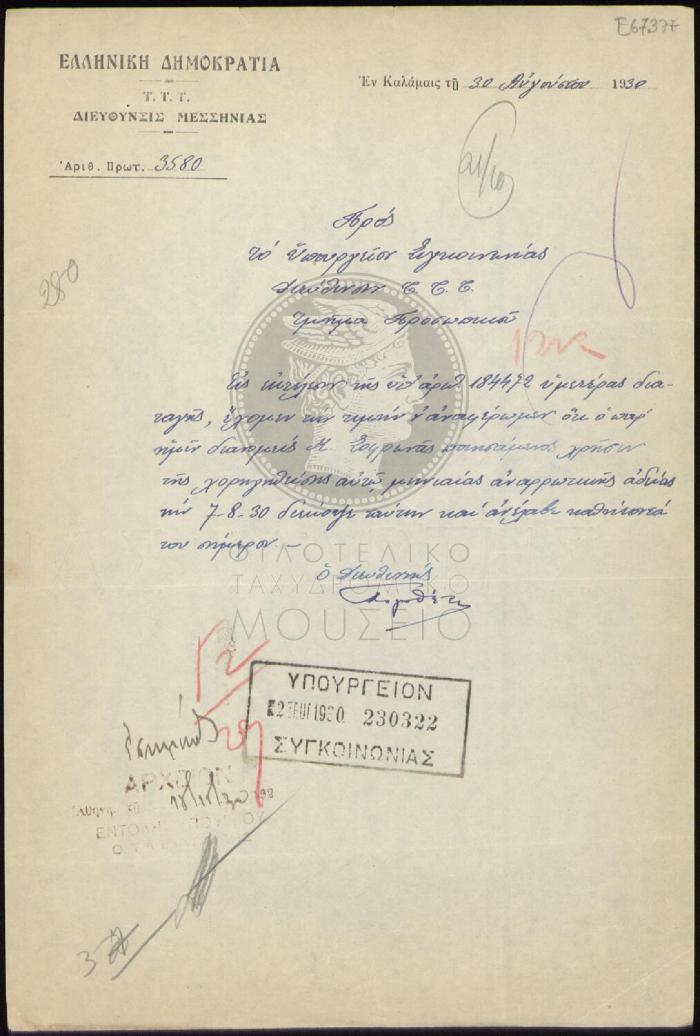 Ε67377
ΕΛΛΗΝΙΚΗ ΔΗΜΟΚΡΑΤΙΑ
Τ. Τ. Τ.
ΔΙΕΥΘΥΝΣΙΣ ΜΕΣΣΗΝΙΑΣ
Ἀριθ. Πρωτ. 3580
Ἐν Καλάμαις τῇ 30 Αὐγούστου 1930
280
Πρός
τό Ὑπουργεῖον Συγκοινωνίας
Διεύθυνσιν Τ.Τ.Τ.
Τμῆμα Προσωπικοῦ
Εἰς ἐκτέλεσιν τῆς ὑπ' ἀριθ. 184472 ὑμετέρας δια-
ταγῆς, ἔχομεν τήν τιμήν ν' ἀναφέρωμεν ὅτι ὁ παρ'
ἡμῖν διανομεύς Μ. ποιησάμενος χρῆσιν
τῆς χορηγηθείσης αὐτῷ μηνιαίας ἀναρρωτικῆς ἀδείας
τήν 7-8-30 διέκοψε ταύτην καί ἀνέλαβε καθήκοντά
του σήμερον –
Ὁ Διευθυντής
ΦΙΛΟΤΕΛΙΚΟ
ΤΑΧΥΔΡΟΜΙΚΟ
ΜΟΥΣΕΙΟ
ΥΠΟΥΡΓΕΙΟΝ
1930 230322
ΣΥΓΚΟΙΝΩΝΙΑΣ
ΑΡΧΕΙΟΝ
Ἀθῆναι τῇ
ΕΝΤΟΛΗ ΥΠΟΥΡΓΟΥ